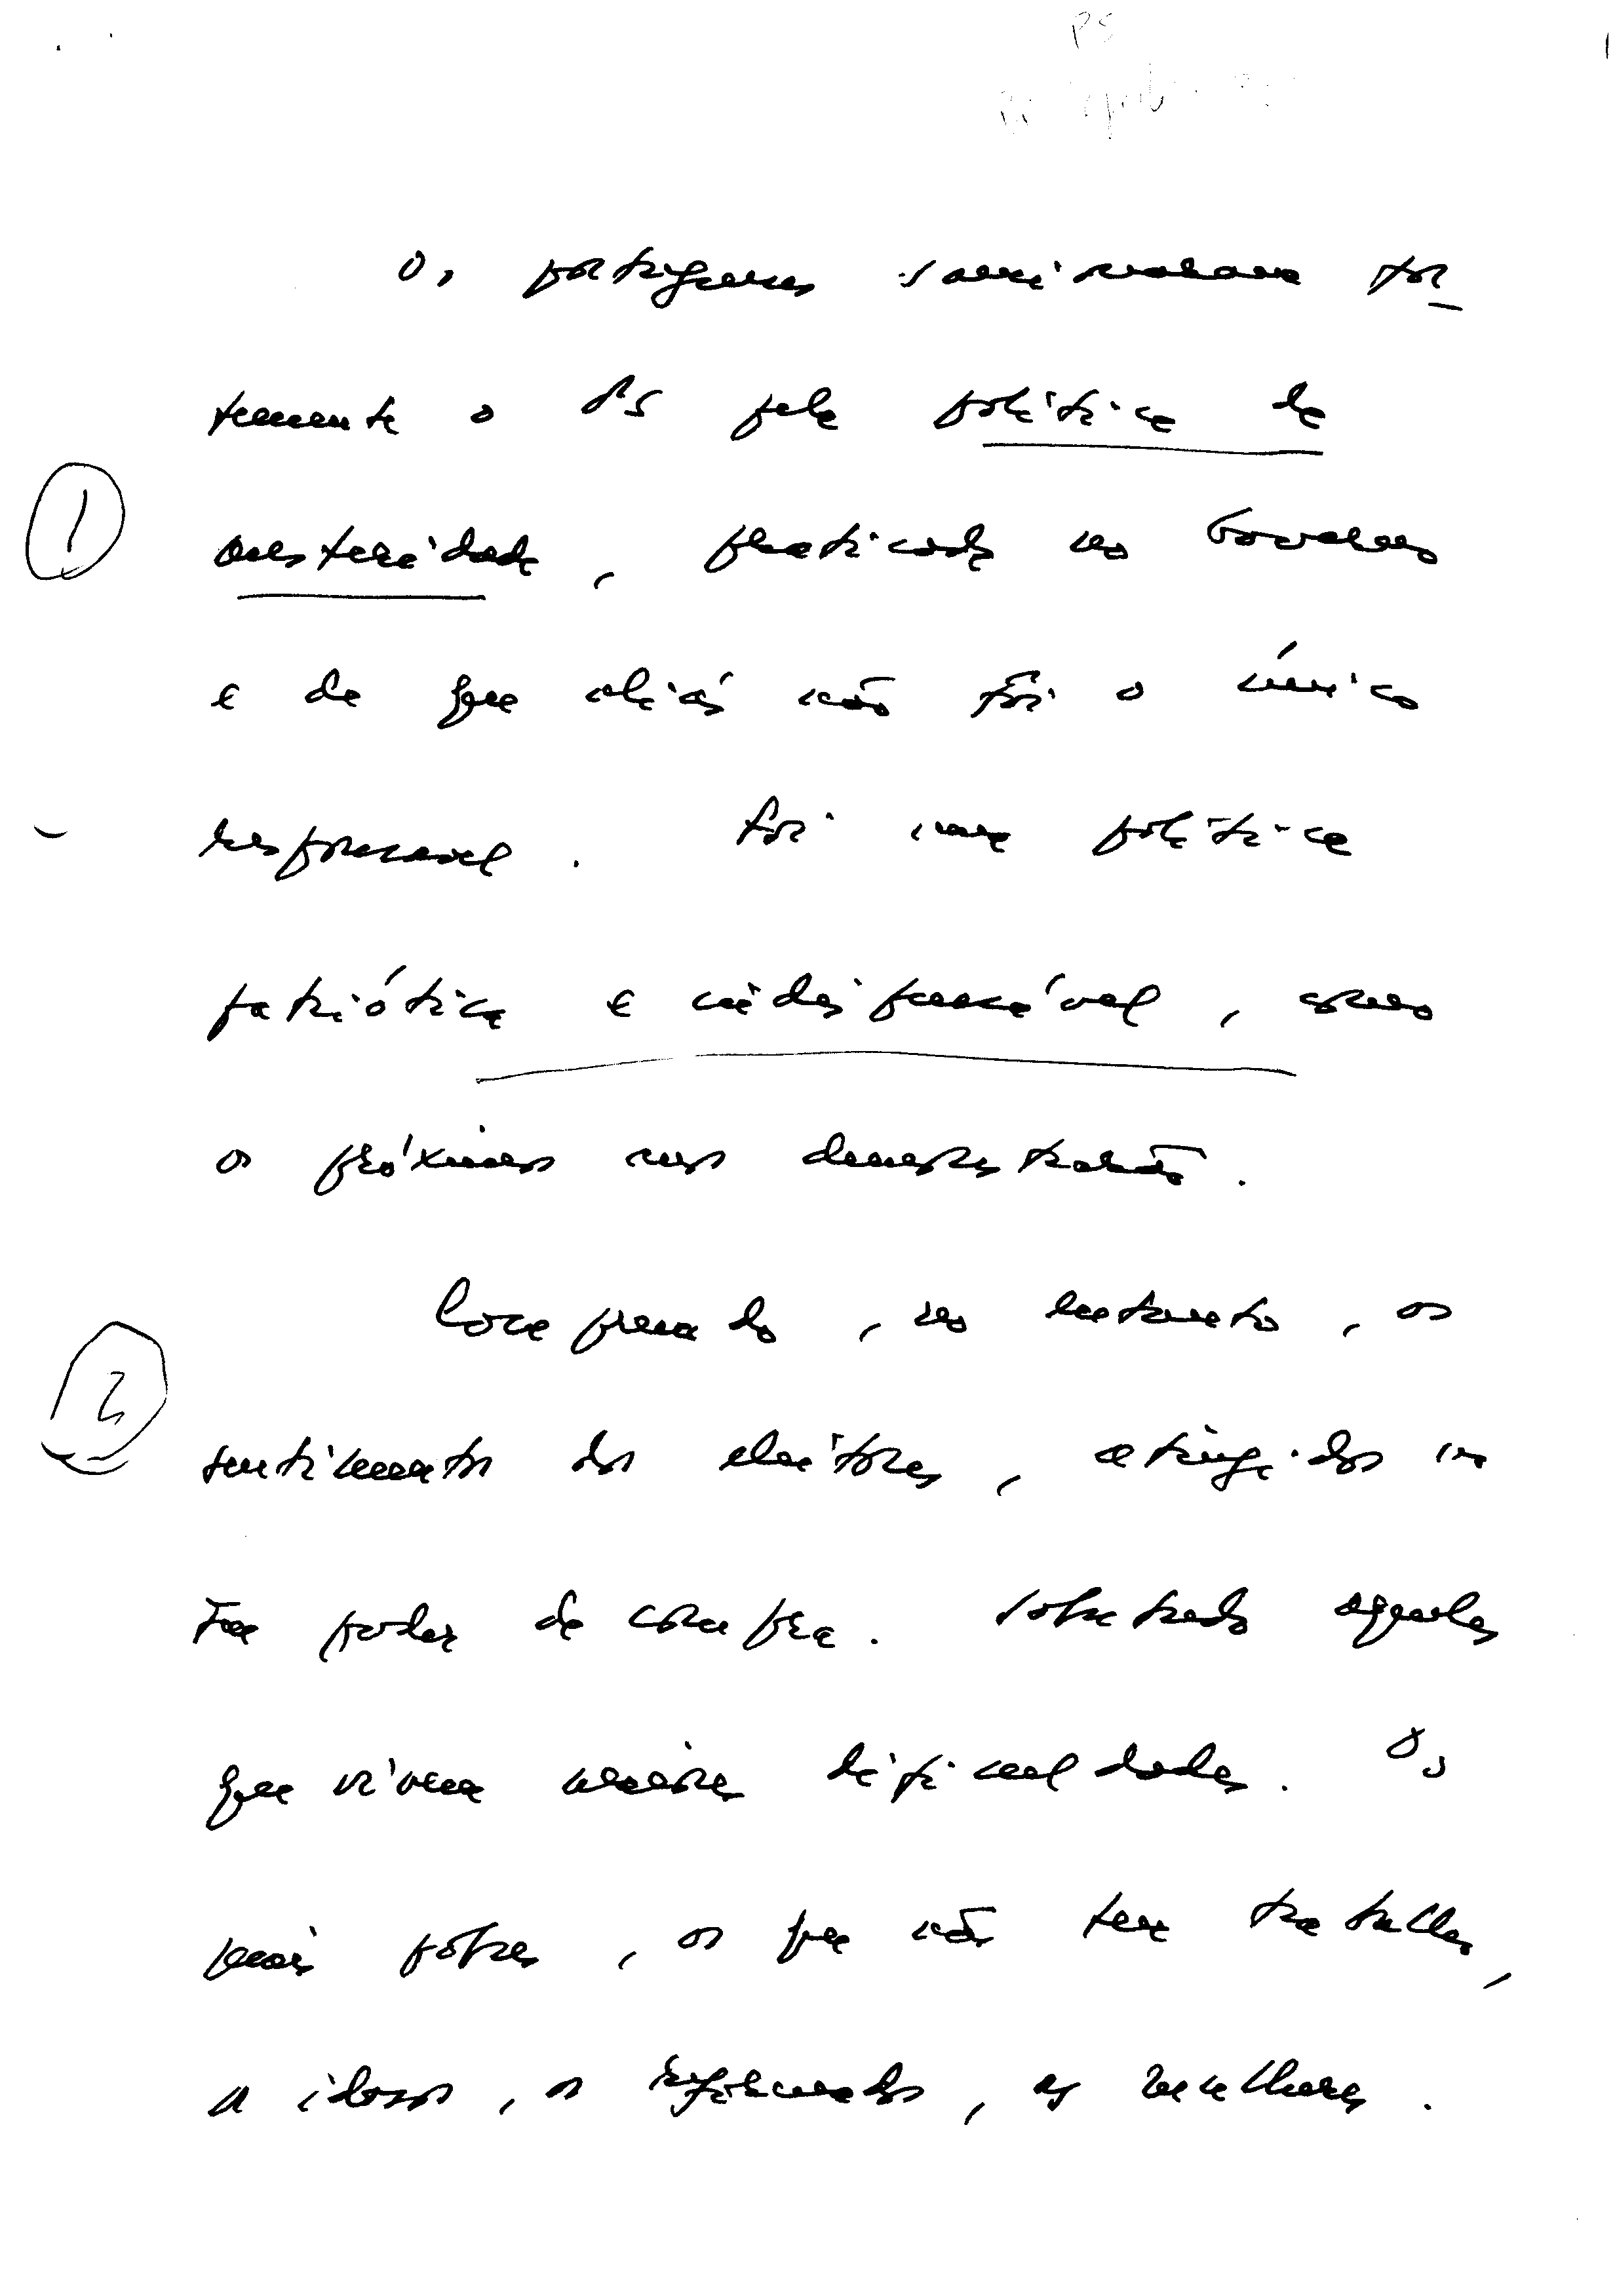 PS
Os portugueses sancionaram for-
temente o PS pela política de
1
austeridade, praticada no Governo
e de que aliás não foi o único
responsável. Foi uma política
patriótica e indispensável, como
os próximos anos demonstrarão.
Compreendo, no entanto, os
2
sentimentos dos eleitores, atingidos no
seu poder de compra. Sobretudo aqueles
que vivem maiores dificuldades. Os
mais pobres, os que não tem trabalho,
os idosos, os reformados, as mulheres.